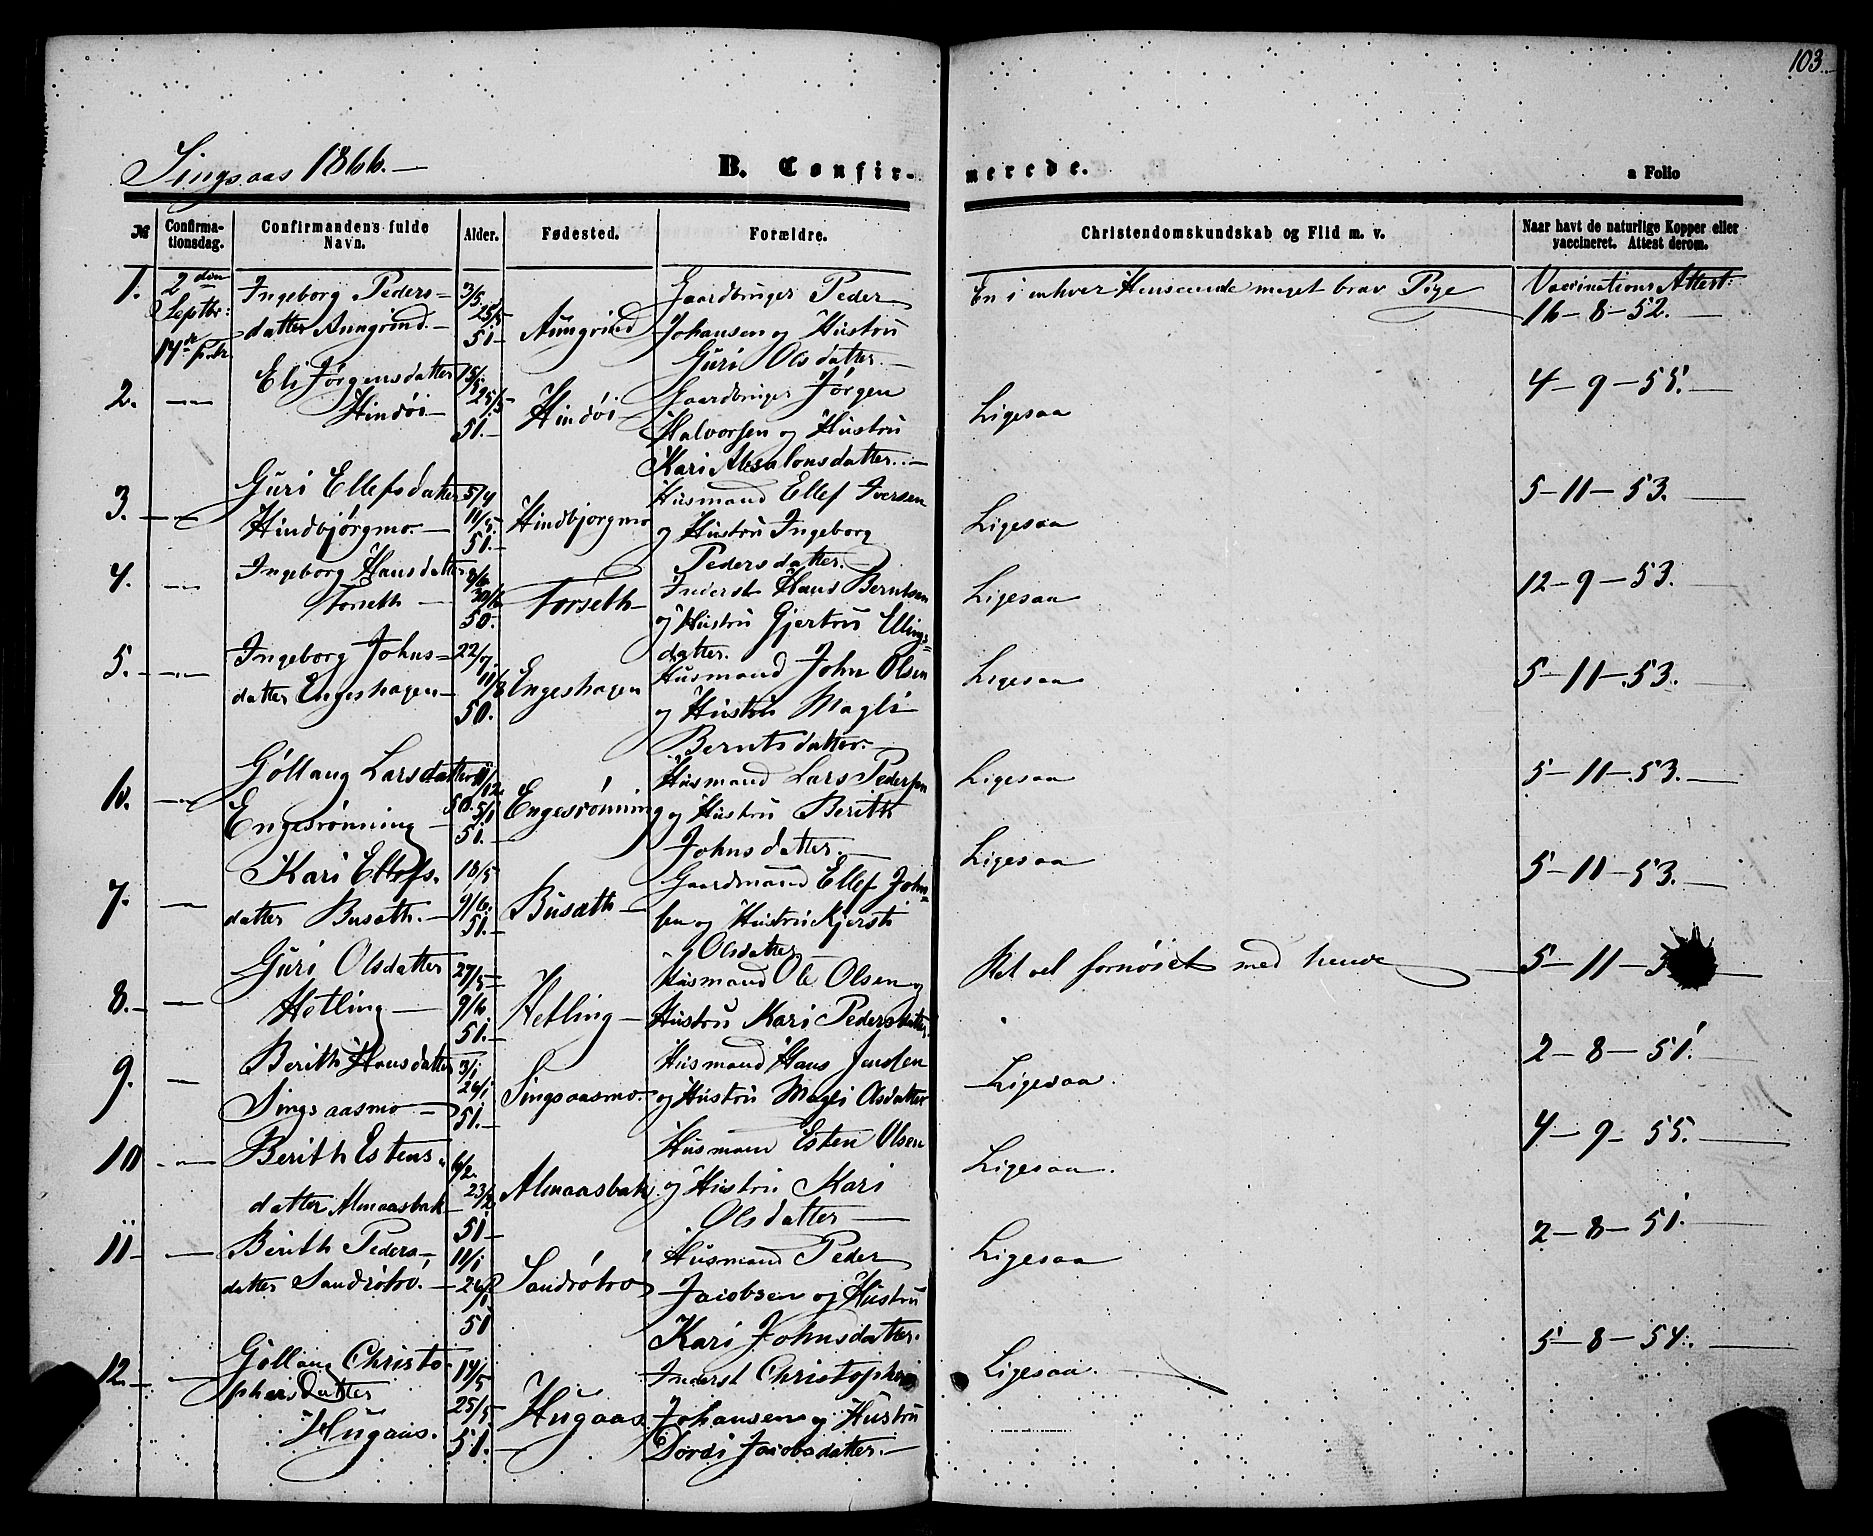 103.
Singsaas 1866.—
B. Confirmerede.
a Folio
№ Confirmationsdag. Confirmandens fulde Navn. Alder. Fødested. Forældre. Christendomskundskab og Flid m. v. Naar havt de naturlige Kopper eller vaccineret. Attest derom.
1. 2den Septbr: Ingeborg Peders- 3/5 Gaardbruger Peder En i enhver Henseende meget brav Pige Vaccinations Attest:
17de datter Aungrind.— 25/5 51— Aungrind Johansen og Hustru 16-8-52.—
Guri Olsdatter.—
2. —"— Eli Jørgensdatter 15/5 25/5 Hindøi— Gaardbruger Jørgen Ligesaa 4-9-55.—
Hindøi— 51.— Halvorsen og Hustru
Kari Absalonsdatter.—
3. —"— Guri Ellefsdatter 5/4 Hindbjørgmo Husmand Ellef Iversen Ligesaa 5-11-53.—
Hindbjørgmo.— 11/5 51.— og Hustru Ingeborg
Pedersdatter.
4. —"— Ingeborg Hansdatter Forseth— Inderst Hans Berntsen Ligesaa 12-9-53.
Forseth— 50. og Hustru Gjertru Ellings=
datter.
5. —"— Ingeborg Johns= 22/7 Engeshagen Husmand John Olsen Ligesaa 5-11-53.—
datter Engeshagen— 11/8 50. og Hustru Magli
Berntsdatter.—
6. —"— Gøllaug Larsdatter 11/12 Engesrønning Husmand Lars Pedersen Ligesaa 5-11-53.—
Engesrønning— 50. 5/1 51.— og Hustru Berith
Johnsdatter.—
7. —"— Kari Ellefs- 18/5 Busæth— Gaardmand Ellef John= Ligesaa 5-11-53.—
datter Busæth.— 9/6 51.— sen og Hustru Kjersti
Olsdatter
8.— —"— Guri Olsdatter 27/5 Hetling— Husmand Ole Olsen og Ret vel fornøiet med hende— 5-11-
Hetling— 9/6 51.— Hustru Kari Pedersdatter.
9. —"— Berith Hansdatter 3/1 Singsaasmo.— Husmand Hans Jensen Ligesaa. 2-8-51.—
Singsaasmo— 26/1 51.— og Hustru Magli Olsdatter
10 —"— Berith Estens- 6/2 Almaasbak Husmand Esten Olsen Ligesaa. 4-9-55.—
datter Almaasbak— 23/2 51— og Hustru Kari
Olsdatter—
11— —"— Berith Peders- 11/1 Sandrøbro Husmand Peder Ligesaa 2-8-51.—
datter Sandrøbro.— 26/1 51 Jacobsen og Hustru
Kari Johnsdatter.
12.— —"— Gøllaug Christo- 14/5 Hugaas Inderst Christopher Ligesaa. 5-8-54.—
phersdatter 25/5 Johansen og Hustru
Hugaas. 51.— Dordi Jacobsdatter.—